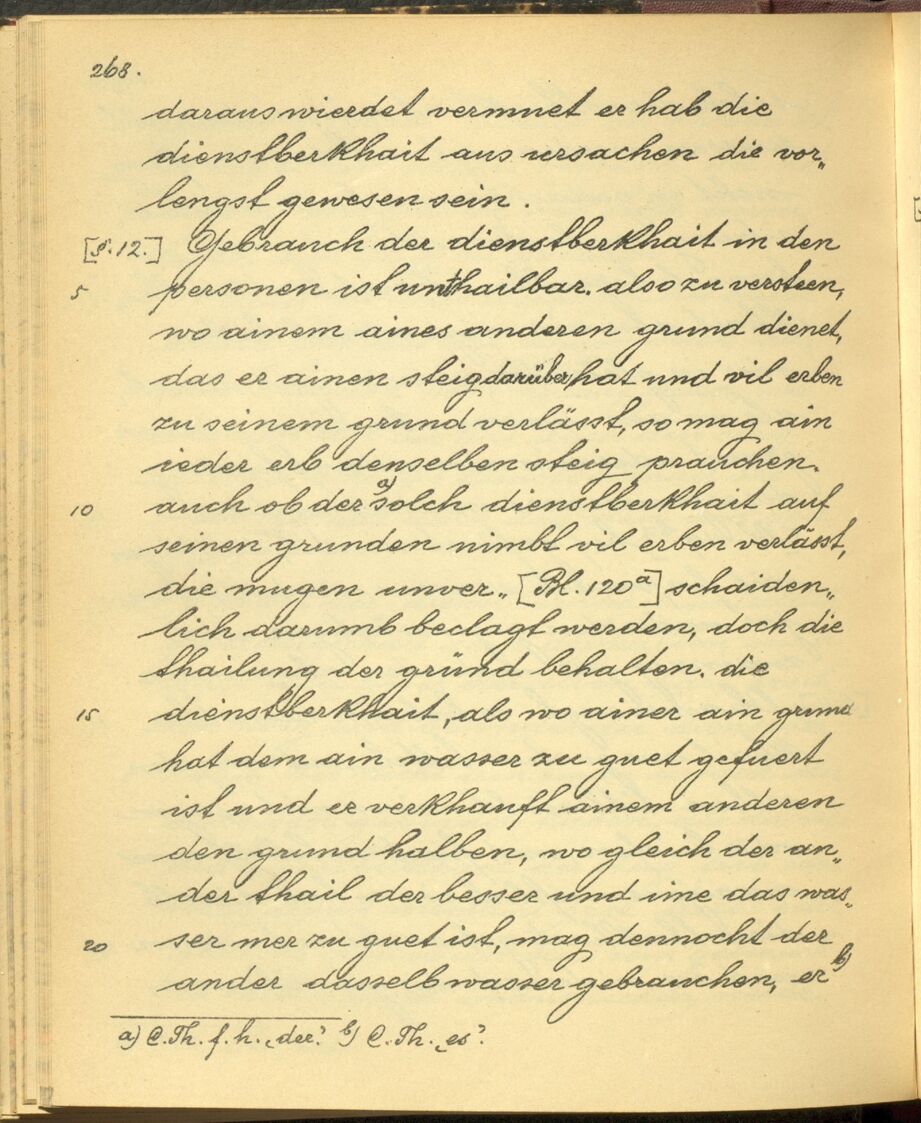 268.
daraus wierdet vermuet er hab die
dienstberkhait aus ursachen die vor„
lengst gewesen sein.
[§.12.] Gebrauch der dienstberkhait in den
5 personen ist unthailbar. also zu versteen,
wo ainem aines anderen grund dienet,
das er ainen steig darüber hat und vil erben
zu seinem grund verlässt, so mag ain
ieder erb denselben steig prauchen.
10 auch ob der a) solch dienstberkhait auf
seinen grunden nimbt vil erben verlässt,
die mugen unver„ [Bl. 120a] schaiden„
lich darumb beclagt werden, doch die
thailung der gründ behalten. die
15 dienstberkhait, als wo ainer ain grund
hat dem ain wasser zu guet gefuert
ist und er verkhauft ainem anderen
den grund halben, wo gleich der an„
der thail der besser und ime das was„
20 ser mer zu guet ist, mag dennocht der
ander dasselb wasser gebrauchen, er b)
a) C. Th. f. h. „der". b) C. Th. „es".